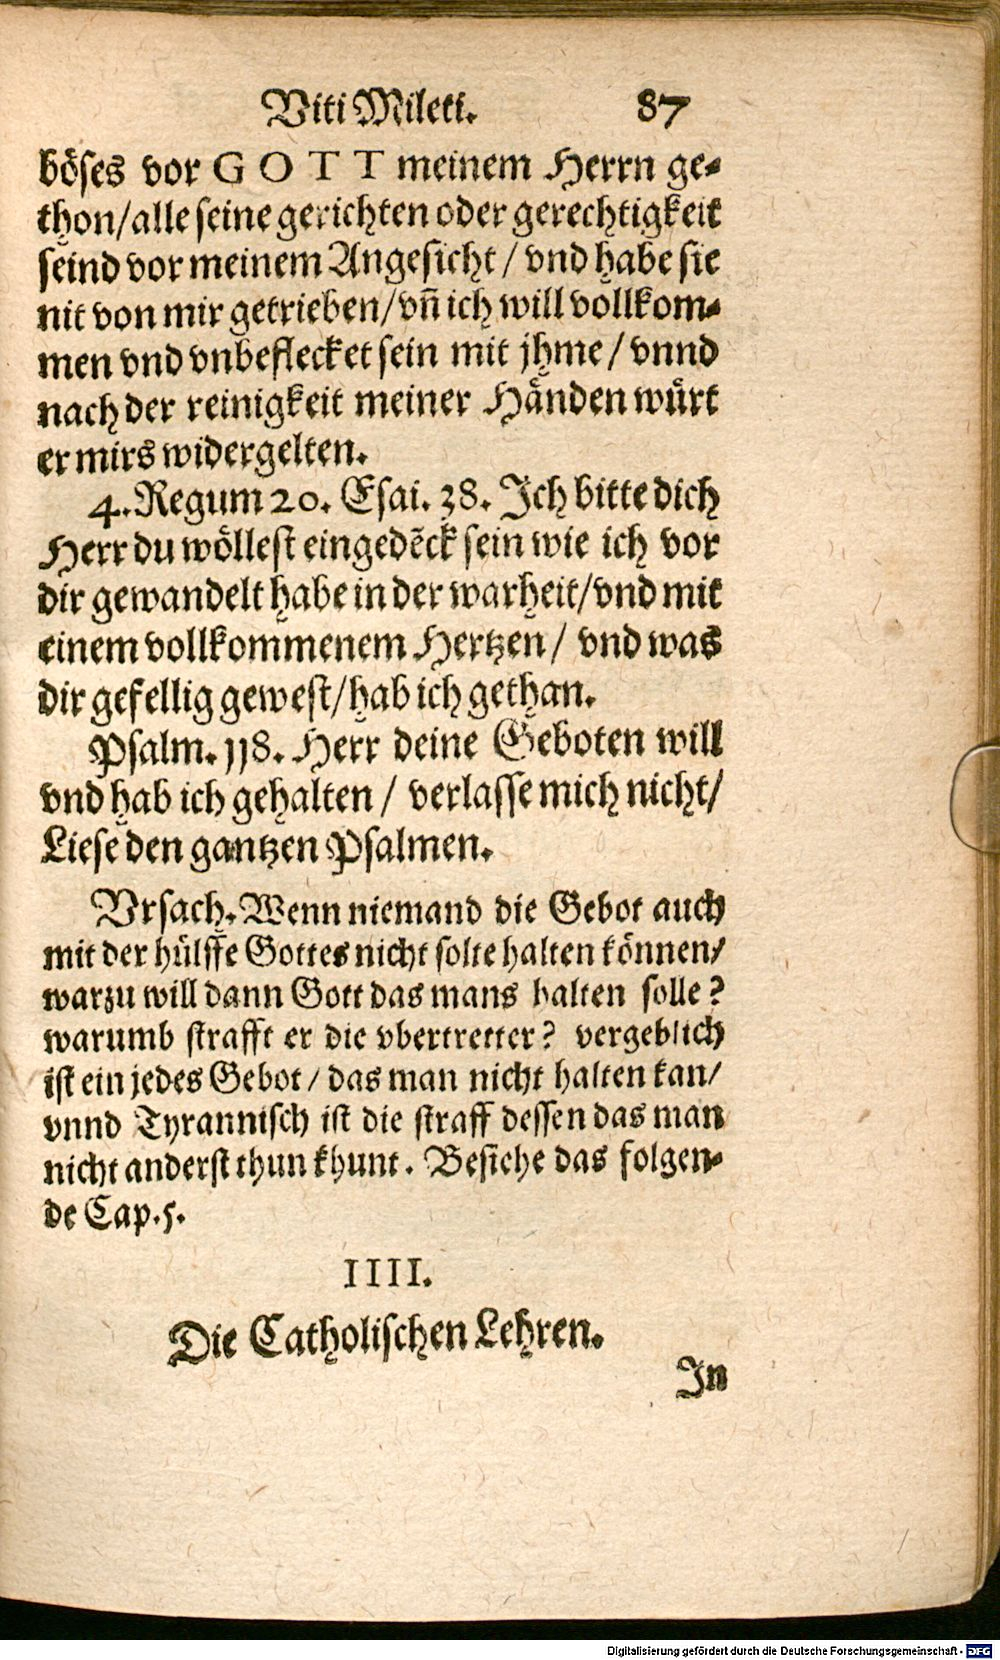 Viti Mileti. 87
böses vor GOTT meinem Herrn ge-
thon/alle seine gerichten oder gerechtigkeit
seind vor meinem Angesicht / vnd habe sie
nit von mir getrieben/vn̄ ich will vollkom-
men vnd vnbeflecket sein mit jhme / vnnd
nach der reinigkeit meiner Händen würt
er mirs widergelten.
4. Regum 20. Esai. 38. Ich bitte dich
Herr du wöllest eingedẽck sein wie ich vor
dir gewandelt habe in der warheit/vnd mit
einem vollkommenem Hertzen / vnd was
dir gefellig gewest/hab ich gethan.
Psalm. 118. Herr deine Geboten will
vnd hab ich gehalten / verlasse mich nicht/
Liese den gantzen Psalmen.
Vrsach. Wenn niemand die Gebot auch
mit der hülffe Gottes nicht solte halten können/
warzu will dann Gott das mans halten solle?
warumb strafft er die vbertretter? vergeblich
ist ein jedes Gebot / das man nicht halten kan/
vnnd Tyrannisch ist die straff dessen das man
nicht anderst thun khunt. Besiche das folgen-
de Cap. 5.
IIII.
Die Catholischen Lehren.
In
Digitalisierung gefördert durch die Deutsche Forschungsgemeinschaft - DFG